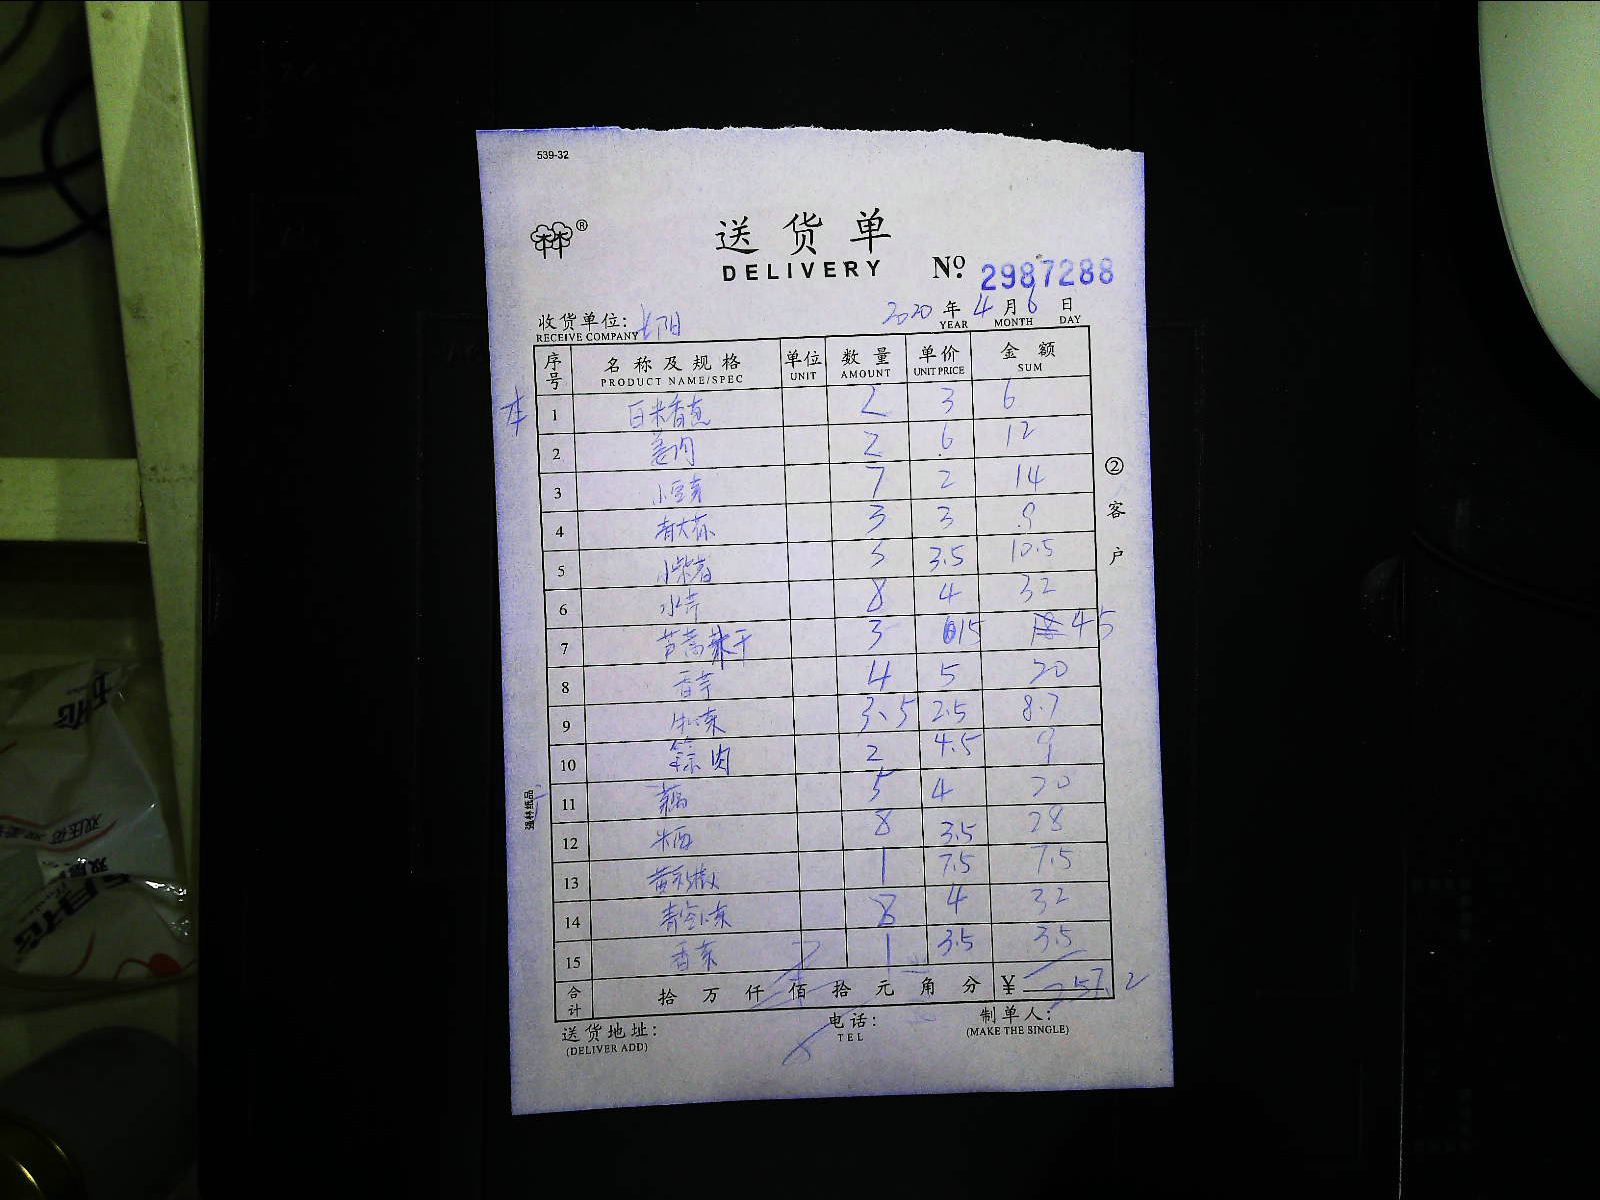 539-32
®
送货单
DELIVERY
Nº. 2987288
收货单位: 长阳 2020 年 4 月 6 日
RECEIVE COMPANY YEAR MONTH DAY
序号 名称及规格 单位 数量 单价 金额
PRODUCT NAME/SPEC UNIT AMOUNT UNIT PRICE SUM
本
1 白米香 2 3 6
2 姜肉 2 6 12
3 小豆芽 7 2 14
4 3 3 9
5 3 3.5 10.5
6 水芹 8 4 32
7 芦蒿 干 3 15 45
8 香芋 4 5 20
9 3.5 2.5 8.7
10 蒜肉 2 4.5 9
11 藕 5 4 20
12 8 3.5 28
13 1 7.5 7.5
14 8 4 32
15 香菜 1 3.5 3.5
合计 拾 万 仟 佰 拾 元 角 分 ¥ 257.2
送货地址: 电话: 制单人:
(DELIVER ADD) TEL (MAKE THE SINGLE)
②客户
强林纸品